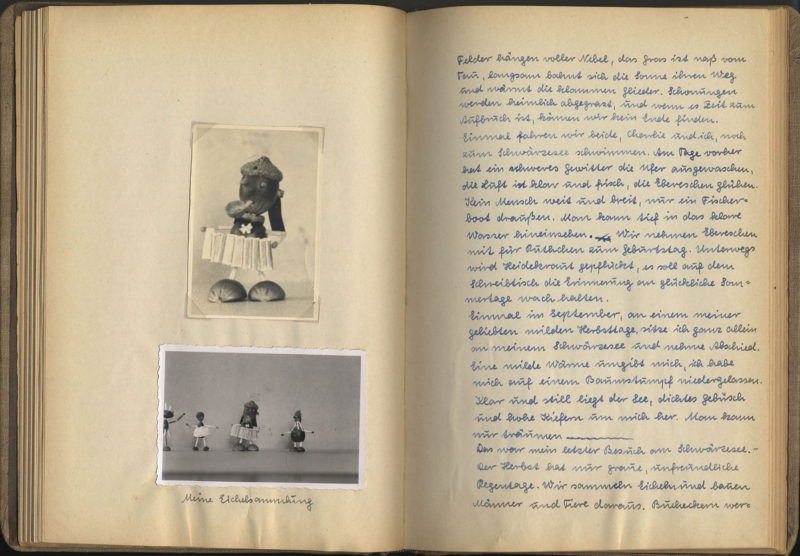 Meine Eichelsammlung
Felder hängen voller Nebel, das Gras ist naß vom
Tau, langsam bahnt sich die Sonne ihren Weg
und wärmt die klammen Glieder. Schonungen
werden heimlich abgegrast, und wenn es Zeit zum
Aufbruch ist, können wir kein Ende finden.
Einmal fahren wir beide, Charlie und ich, noch
zum Schwärzesee schwimmen. Am Tage vorher
hat ein schweres Gewitter die Ufer ausgewaschen,
die Luft ist klar und frisch, die Ebereschen glühen.
Kein Mensch weit und breit, nur ein Fischer-
boot draußen. Man kann tief in das klare
Wasser hineinsehen. Wir nehmen Ebereschen
mit für Ruthchen zum Geburtstag. Unterwegs
wird Heidekraut gepflückt, es soll auf dem
Schreibtisch die Erinnerung an glückliche Som=
mertage wach halten.
Einmal im September, an einem meiner
geliebten milden Herbsttage, sitze ich ganz allein
an meinem Schwärzesee und nehme Abschied.
Eine milde Wärme umgibt mich, ich habe
mich auf einem Baumstumpf niedergelassen.
Klar und still liegt der See, dichtes Gebüsch
und hohe Kiefern um mich her. Man kann
nur träumen
Das war mein letzter Besuch am Schwärzesee. –
Der Herbst hat nur graue, unfreundliche
Regentage. Wir sammeln Eicheln und bauen
Männer und Tiere daraus. Bucheckern wer=